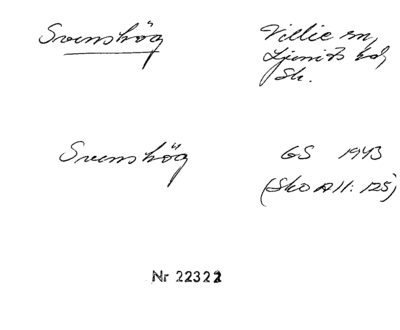 Svenshög
Villie sn,
Ljunits hd,
Sk.
Svenshög
GS 1943
(SkO A II: 125)
Nr 22322